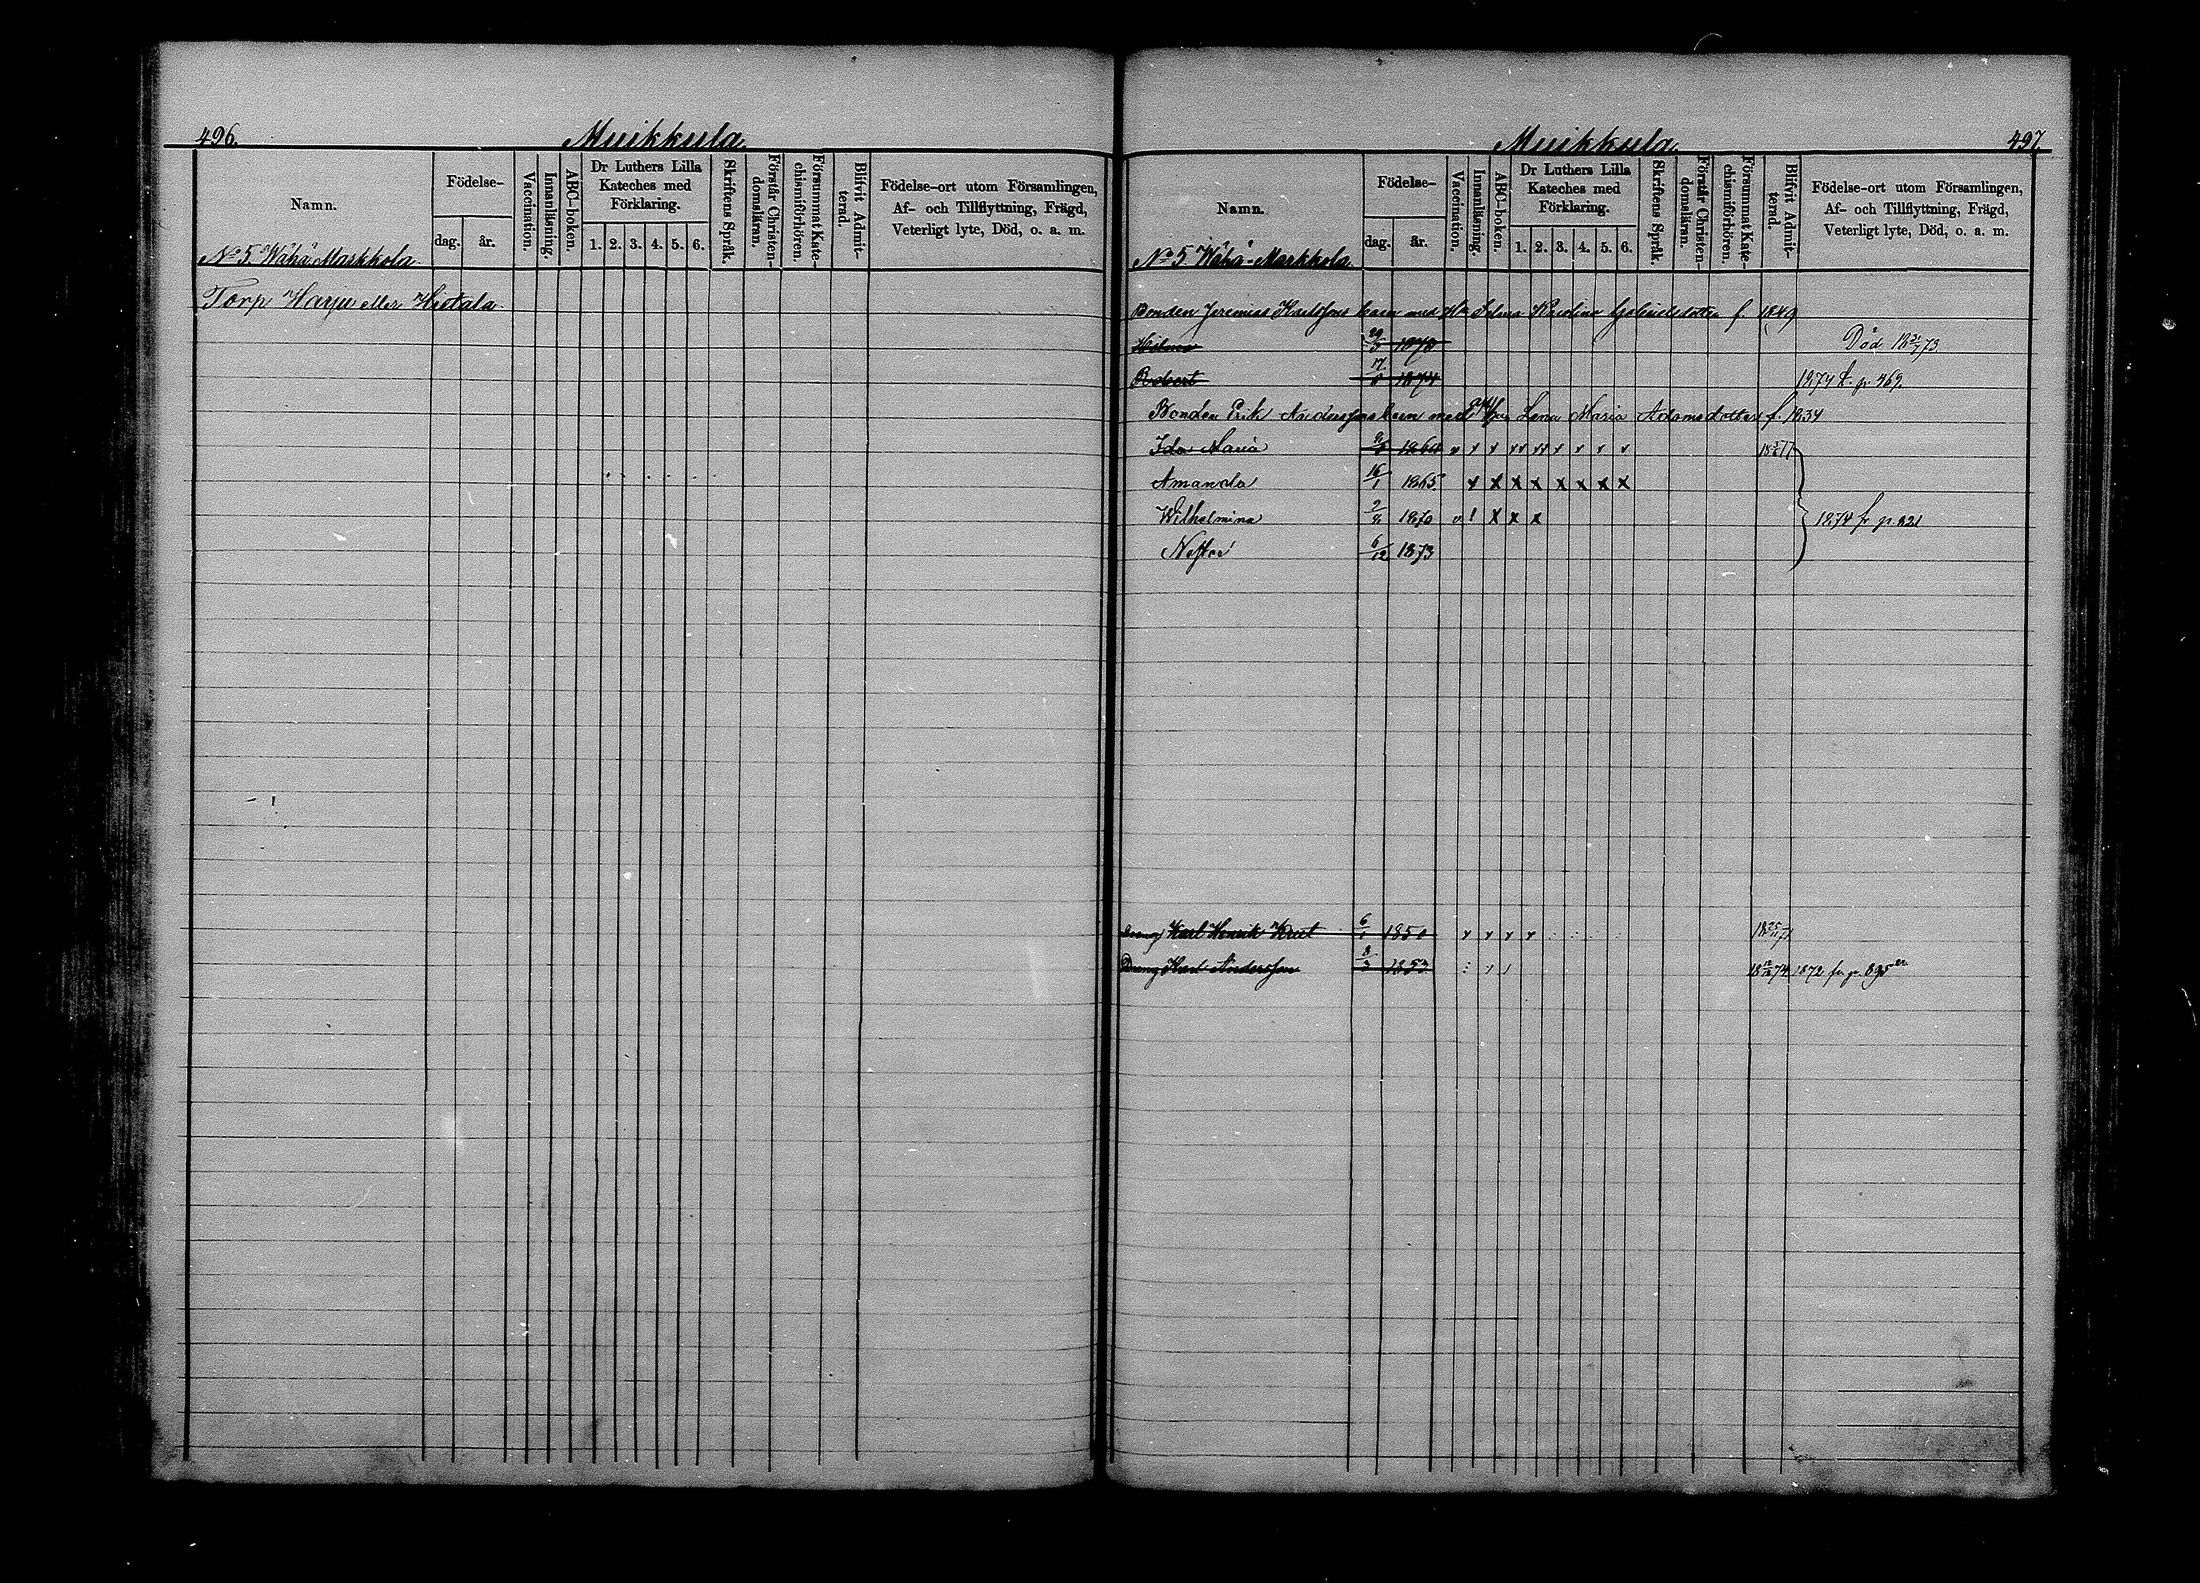 496. Muikkula
Namn. Födelse- dag. år. Vaccination. Innanläsning. ABC-boken. Dr Luthers Lilla Kateches med Förklaring. 1. 2. 3. 4. 5. 6. Skriftens Språk. Förstår Christendomsläran. Försummat Katechismiförhören. Blifvit Admitterad. Födelse-ort utom Församlingen, Af- och Tillflyttning, Frägd, Veterligt lyte, Död, o. a. m.
No 5 Wähä Markkola
Torp Harju eller Hietala
Muikkula 497.
Namn. Födelse- dag. år. Vaccination. Innanläsning. ABC-boken. Dr Luthers Lilla Kateches med Förklaring. 1. 2. 3. 4. 5. 6. Skriftens Språk. Förstår Christendomsläran. Försummat Katechismiförhören. Blifvit Admitterad. Födelse-ort utom Församlingen, Af- och Tillflyttning, Frägd, Veterligt lyte, Död, o. a. m.
No 5 Wähä-Markkola
Bonden Jeremias Karlssons barn med Selma Karolina Gabrielsdotter f. 1849
Hilma Död 18 73
Robert 1874 1874 p. 469.
Bonden Erik Anderssons barn med Lena Maria Adamsdotter f. 1834
Ida Maria v v v vv vv v v v v
Amanda 16/1 1865 x x x x x x x x
Wilhelmina 1870 v ! x x x 1874 fr p. 921
Nestor 6/12 1873
Dreng Karl Henrik 6/1 1850 v v v v
Dreng Karl Andersson 8/3 1853 1872 fr. p. 895